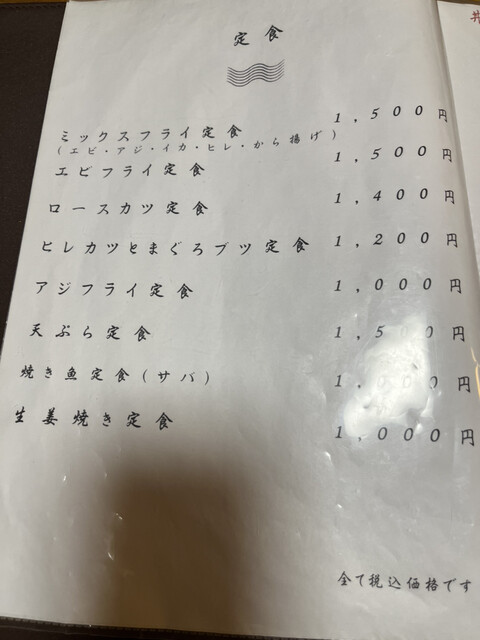 定食
ミックスフライ定食 1,500円
(エビ・アジ・イカ・ヒレ・から揚げ)
エビフライ定食 1,500円
ロースカツ定食 1,400円
ヒレカツとまぐろブツ定食 1,200円
アジフライ定食 1,000円
天ぷら定食 1,500円
焼き魚定食(サバ) 1,000円
生姜焼き定食 1,000円
全て税込価格です